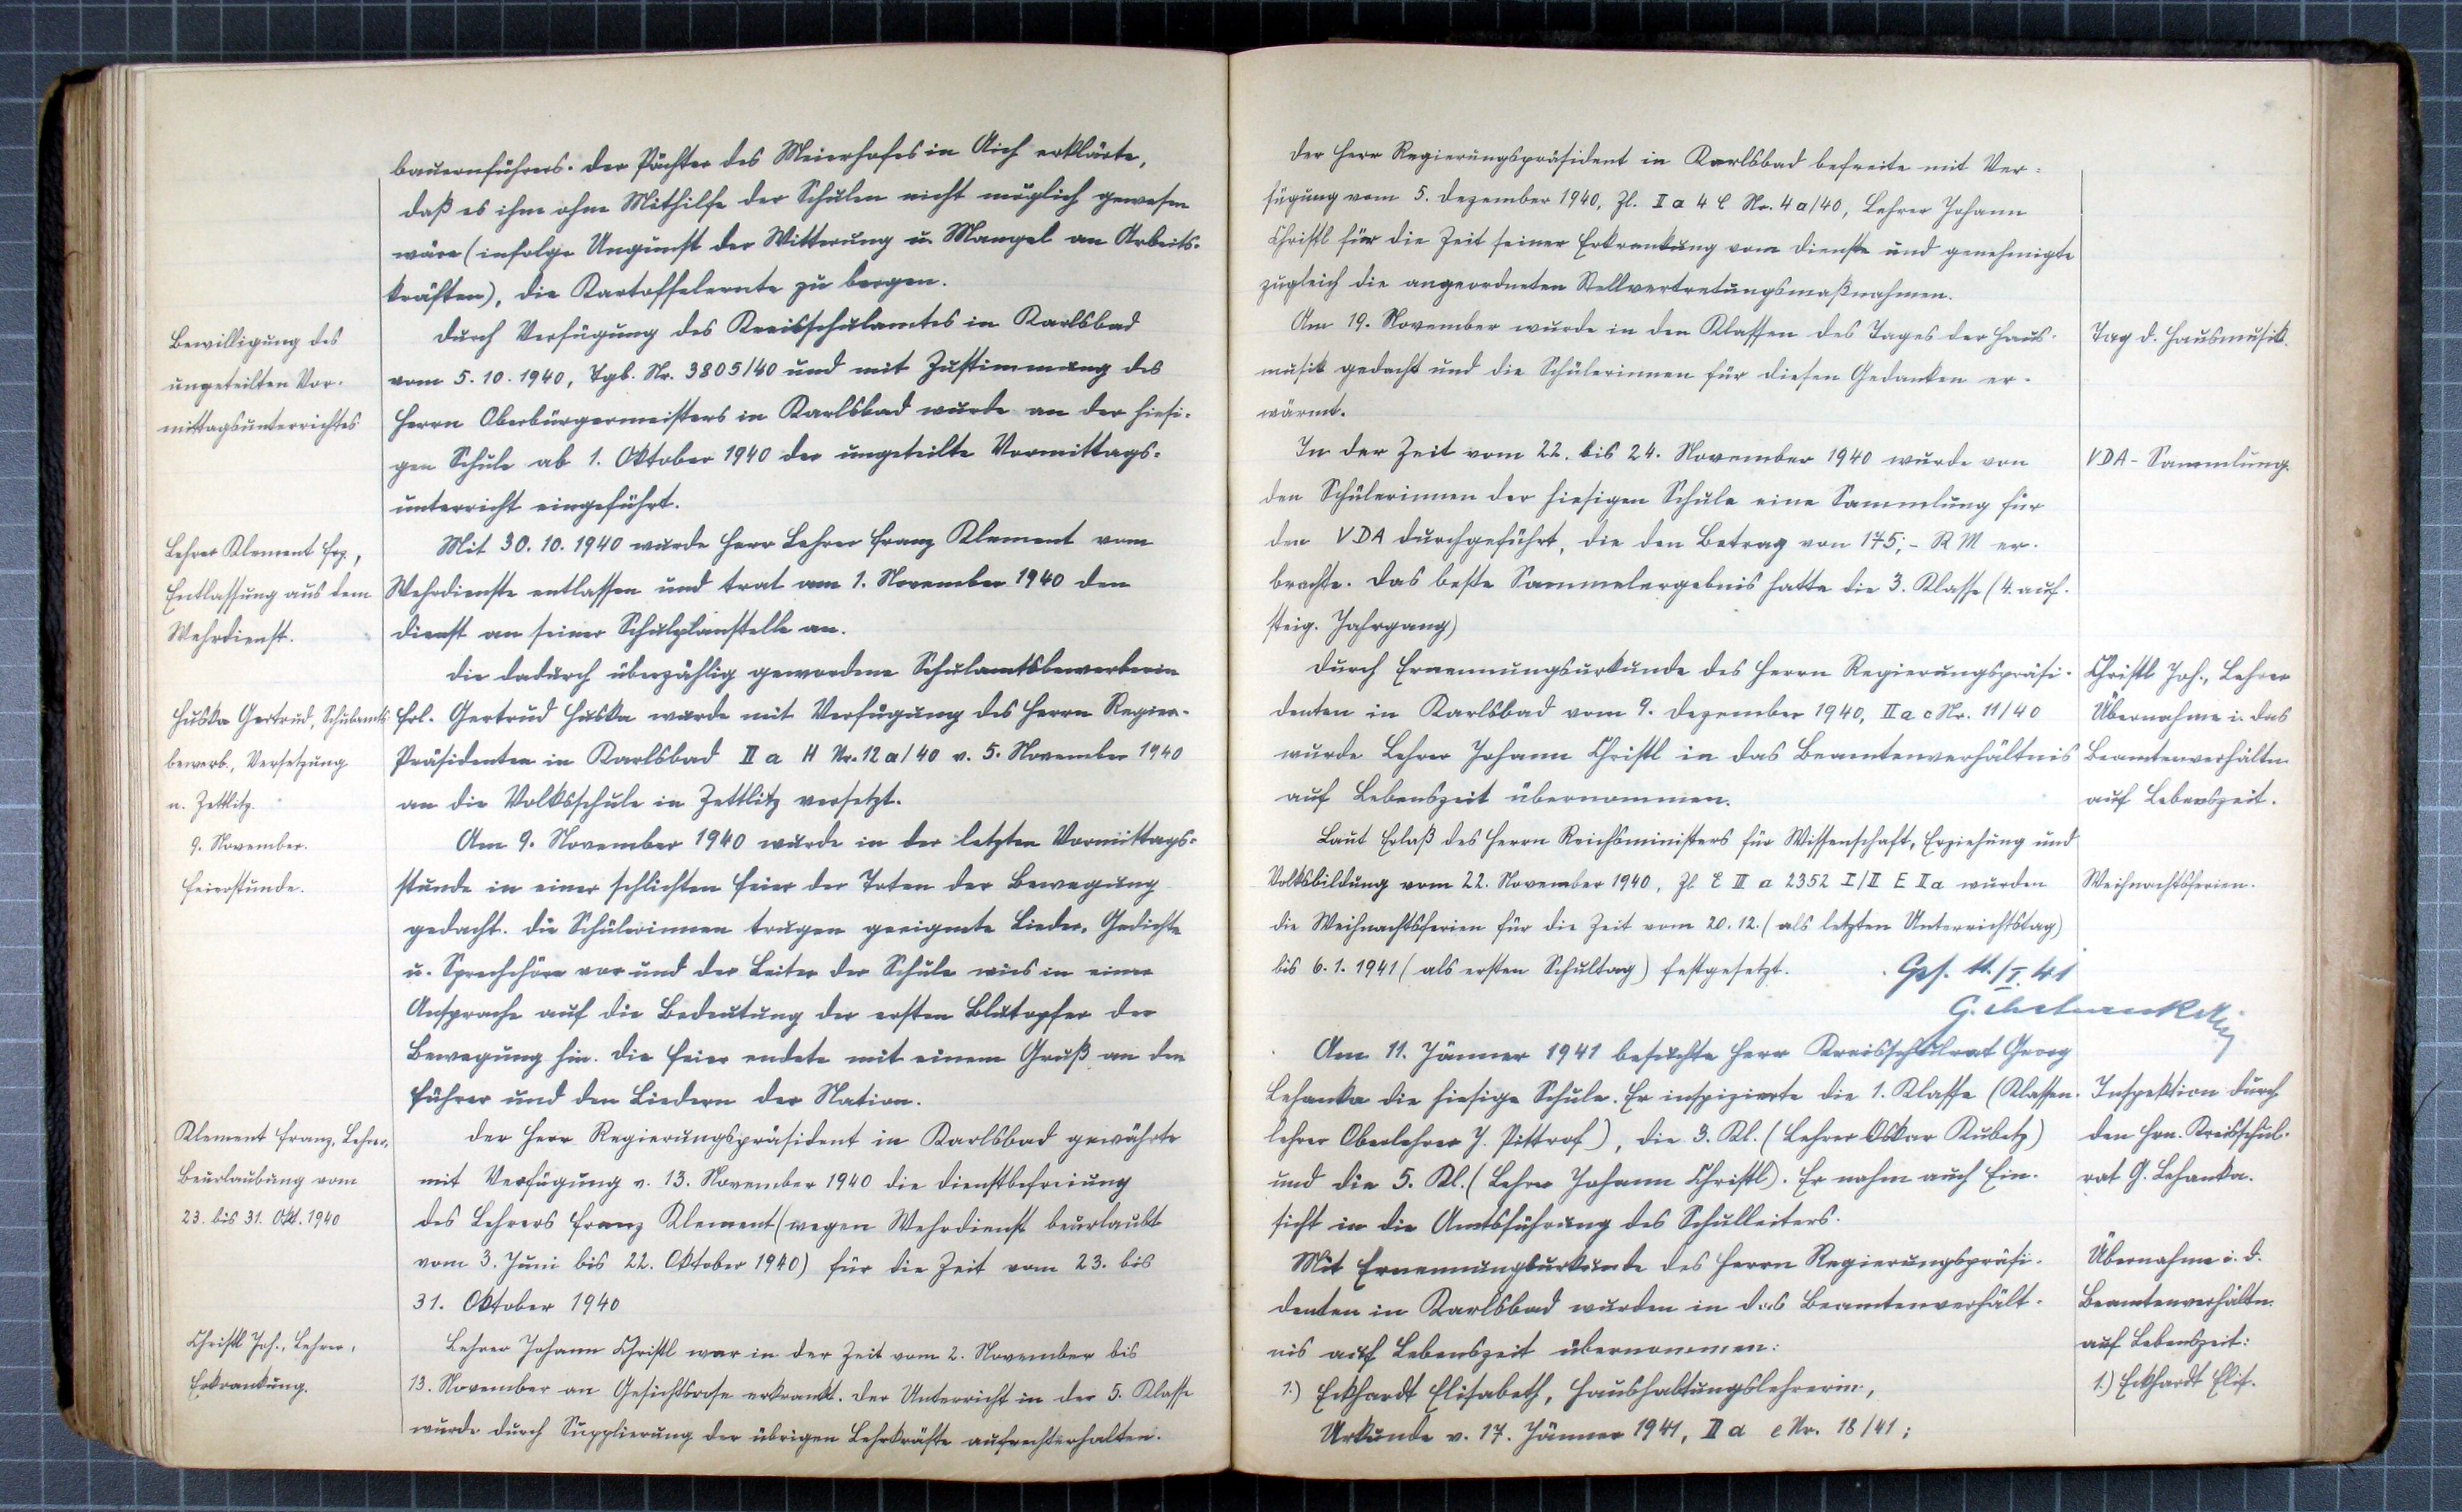 bauernführers. Der Pächter des Meierhofes in Aich erklärte,
daß es ihm ohne Mithilfe der Schulen nicht möglich gewesen
wäre (infolge Ungunst der Witterung u. Mangel an Arbeits-
kräften), die Kartoffelernte zu bergen.
Bewilligung des
ungeteilten Vor-
mittagsunterrichtes
Durch Verfügung des Kreisschulamtes in Karlsbad
vom 5.10.1940, Tgb. Nr. 3805/40 und mit Zustimmung des
Herrn Oberbürgermeisters in Karlsbad wurde an der hiesi-
gen Schule ab 1. Oktober 1940 der ungeteilte Vormittags-
unterricht eingeführt.
Lehrer Klement Frz.,
Entlassung aus dem
Wehrdienst.
Mit 30.10.1940 wurde Herr Lehrer Franz Klement vom
Wehrdienste entlassen und trat am 1. November 1940 den
Dienst an seiner Schulplanstelle an.
Huska Gertrud, Schulamts-
bewerb., Versetzung
n. Zettlitz.
Die dadurch überzählig gewordene Schulamtsbewerberin
Frl. Gertrud Huska wurde mit Verfügung des Herrn Regier-
Präsidenten in Karlsbad II a H Nr. 12 a/40 v. 5. November 1940
an die Volksschule in Zettlitz versetzt.
9. November.
Feierstunde.
Am 9. November 1940 wurde in der letzten Vormittags-
stunde in einer schlichten Feier der Toten der Bewegung
gedacht. Die Schülerinnen trugen geeignete Lieder, Gedichte
u. Sprechchöre vor und der Leiter der Schule wies in einer
Ansprache auf die Bedeutung der ersten Blutopfer der
Bewegung hin. Die Feier endete mit einem Gruß an den
Führer und den Liedern der Nation.
Klement Franz, Lehrer,
Beurlaubung vom
23. bis 31. Okt. 1940
Der Herr Regierungspräsident in Karlsbad gewährte
mit Verfügung v. 13. November 1940 die Dienstbefreiung
des Lehrers Franz Klement (wegen Wehrdienst beurlaubt
vom 3. Juni bis 22. Oktober 1940) für die Zeit vom 23. bis
31. Oktober 1940
Christl Joh., Lehrer,
Erkrankung.
Lehrer Johann Christl war in der Zeit vom 2. November bis
13. November an Gesichtsrose erkrankt. Der Unterricht in der 5. Klasse
wurde durch Supplierung der übrigen Lehrkräfte aufrechterhalten.
Der Herr Regierungspräsident in Karlsbad befreite mit Ver-
fügung vom 5. Dezember 1940, Zl. I a 4 C Nr. 4a/40, Lehrer Johann
Christl für die Zeit seiner Erkrankung vom Dienste und genehmigte
zugleich die angeordneten Stellvertretungsmaßnahmen.
Am 19. November wurde in den Klassen des Tages der Haus-
musik gedacht und die Schülerinnen für diesen Gedanken er-
wärmt.
Tag d. Hausmusik.
In der Zeit vom 22. bis 24. November 1940 wurde von
den Schülerinnen der hiesigen Schule eine Sammlung für
den VDA durchgeführt, die den Betrag von 175,- RM er-
brachte. Das beste Sammelergebnis hatte die 3. Klasse (4. auf-
steig. Jahrgang)
VDA-Sammlung.
Durch Ernennungsurkunde des Herrn Regierungspräsi-
denten in Karlsbad vom 9. Dezember 1940, II a c Nr. 11/40
wurde Lehrer Johann Christl in das Beamtenverhältnis
auf Lebenszeit übernommen.
Christl Joh., Lehrer
Übernahme i. das
Beamtenverhältn.
auf Lebenszeit.
Laut Erlaß des Herrn Reichsministers für Wissenschaft, Erziehung und
Volksbildung vom 22. November 1940, Zl E III a 2352 I/II E II a wurden
die Weihnachtsferien für die Zeit vom 20.12. (als letzten Unterrichtstag)
bis 6.1.1941 (als ersten Schultag) festgesetzt.
Weihnachtsferien.
Ges. 11./I. 41
Am 11. Jänner 1941 besuchte Herr Kreisschulrat Georg
Lehanka die hiesige Schule. Er inspizierte die 1. Klasse (Klassen-
lehrer Oberlehrer J. Pittrof), die 3. Kl. (Lehrer Oskar Kubetz)
und die 5. Kl. (Lehrer Johann Christl). Er nahm auch Ein-
sicht in die Amtsführung des Schulleiters.
Inspektion durch
den Hrn. Kreisschul-
rat G. Lehanka.
Mit Ernennungsurkunde des Herrn Regierungspräsi-
denten in Karlsbad wurden in das Beamtenverhält-
nis auf Lebenszeit übernommen:
1.) Eckhardt Elisabeth, Haushaltungslehrerin,
Urkunde v. 17. Jänner 1941, II a e Nr. 18/41;
Übernahme i. d.
Beamtenverhältn.
auf Lebenszeit:
1.) Eckhardt Elis.